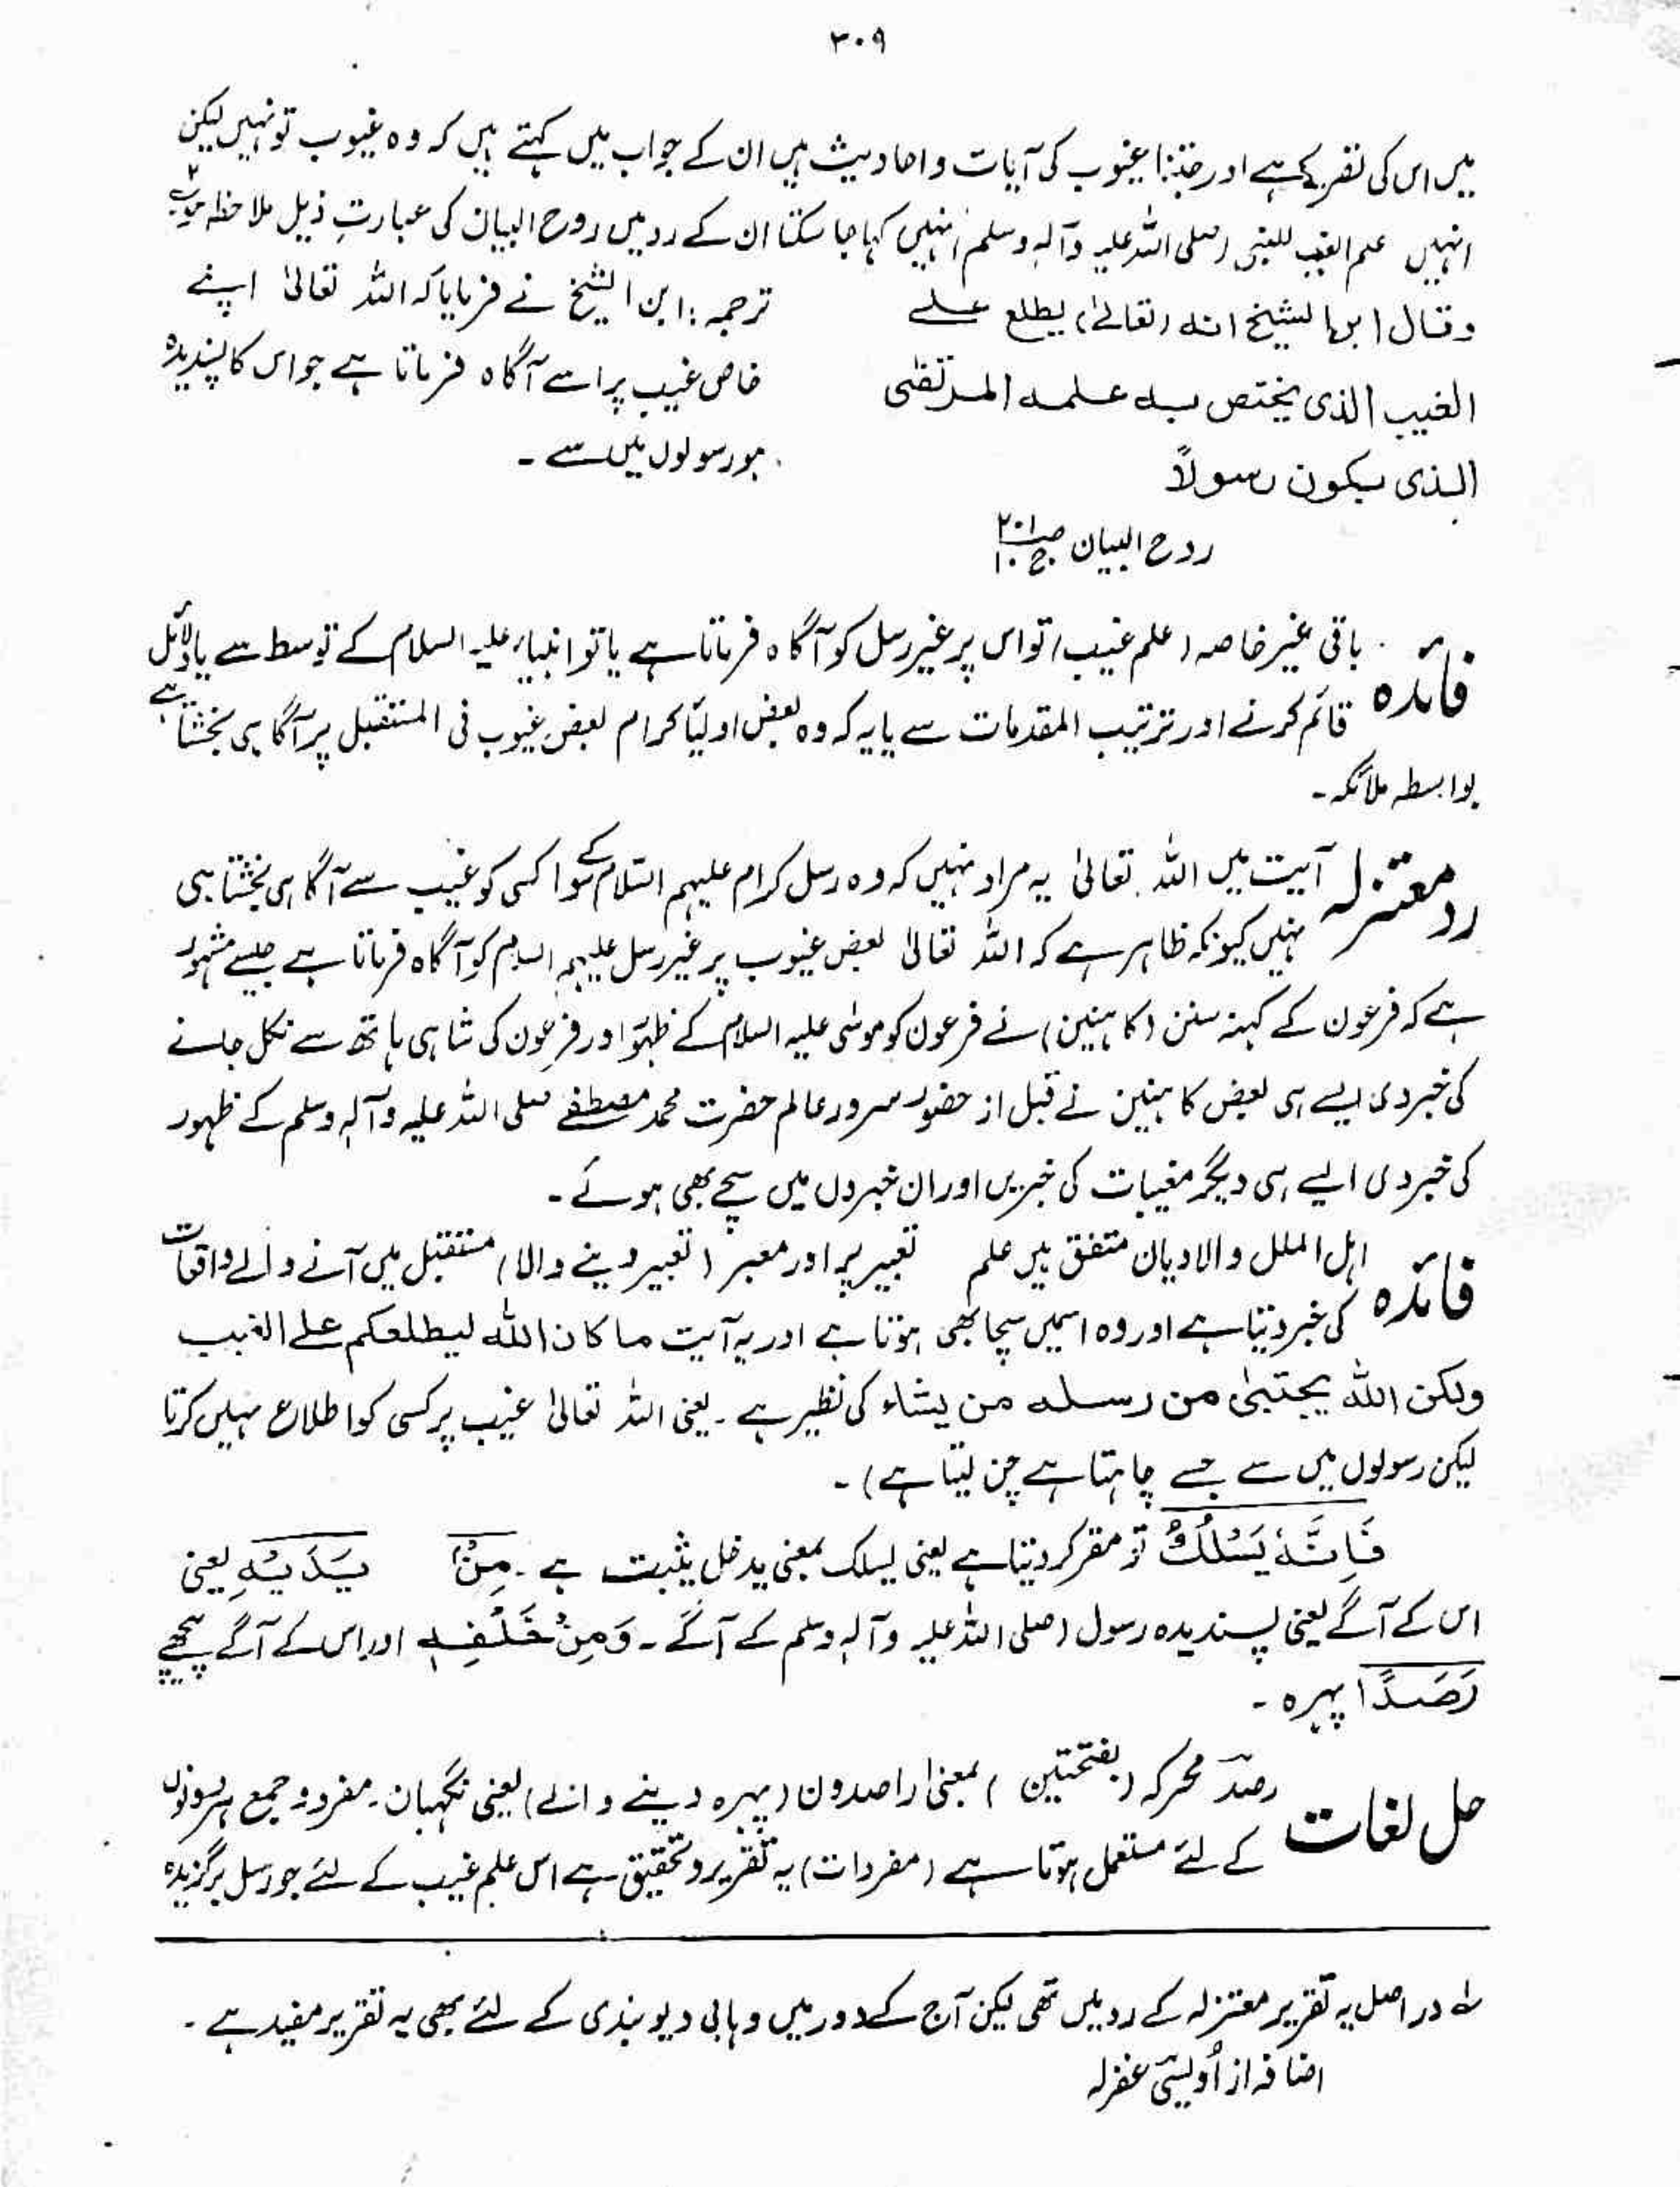 ۳۰۹
میں اس کی تصریح ہے اور جتنا غیوب کی آیات و احادیث ہیں ان کے جواب میں کہتے ہیں کہ وہ غیوب تو نہیں لیکن
انہیں علم الغیب للنبی (صلی اللہ علیہ وآلہ وسلم) نہیں کہا جا سکتا ان کے رد میں روح البیان کی عبارتِ ذیل ملاحظہ ہو
وقال ابن الشیخ انہ (تعالےٰ) یطلع علے
الغیب الذی یختص بہ علمہ المرتضٰی
الذی یکون رسولاً
روح البیان ص۲۰۱ ج۱۰
ترجمہ: ابن الشیخ نے فرمایا کہ اللہ تعالیٰ اپنے
خاص غیب پر اسے آگاہ فرماتا ہے جو اس کا پسندیدہ
ہو رسولوں میں سے ۔
فائدہ باقی غیر خاصہ (علم غیب) تو اس پر غیر رسل کو آگاہ فرماتا ہے یا تو انبیاء علیہ السلام کے توسط سے یا دلائل
قائم کرنے اور ترتیب المقدمات سے یا یہ کہ وہ بعض اولیّا کرام بعض غیوب فی المستقبل پر آگاہی بخشتا ہے
بواسطہ ملائکہ ۔
ردِ معتزلہ آیت میں اللہ تعالیٰ یہ مراد نہیں کہ وہ رسل کرام علیہم السّلام کے سوا کسی کو غیب سے آگاہی بخشتا ہی
نہیں کیونکہ ظاہر ہے کہ اللہ تعالیٰ بعض غیوب پر غیر رسل علیہم السلام کو آگاہ فرماتا ہے جیسے مشہور
ہے کہ فرعون کے کہنہ سنن (کاہنین) نے فرعون کو موسٰی علیہ السلام کے ظہور اور فرعون کی شاہی ہاتھ سے نکل جانے
کی خبر دی ایسے ہی بعض کاہنین نے قبل از حضور سرور عالم حضرت محمد مصطفےٰ صلی اللہ علیہ وآلہٖ وسلم کے ظہور
کی خبر دی ایسے ہی دیگر مغیبات کی خبریں اور ان خبروں میں سچے بھی ہوئے ۔
فائدہ اہل الملل والادیان متفق ہیں علم تعبیر پر اور معبر (تعبیر دینے والا) مستقبل میں آنے والے واقعات
کی خبر دیتا ہے اور وہ اسمیں سچا بھی ہوتا ہے اور یہ آیت ما کان اللہ لیطلعکم علے الغیب
ولکن اللہ یجتبیٰ من رسلہ من یشاء کی نظیر ہے ۔ یعنی اللہ تعالیٰ غیب پر کسی کو اطلاع نہیں کرتا
لیکن رسولوں میں سے جسے چاہتا ہے چن لیتا ہے) ۔
فَاِنَّہٗ یَسْلُکُ تو مقرر کر دیتا ہے یعنی یسلک بمعنی یدخل یثبت ہے ۔ مِنْۢ یَدَیْہِ یعنی
اس کے آگے یعنی پسندیدہ رسول (صلی اللہ علیہ وآلہٖ وسلم کے آگے ۔ وَمِنْ خَلْفِہٖ اور اس کے آگے پیچھے
رَصَدًا پہرہ ۔
حل لغات رصد محرکہ (بفتحتین) بمعنیٰ راصدون (پہرہ دینے والے) یعنی نگہبان۔ مفرد و جمع ہر دونوں
کے لئے مستعمل ہوتا ہے (مفردات) یہ تقریر و تحقیق ہے اس علمِ غیب کے لئے جو رسل برگزیدہ
لہ در اصل یہ تقریر معتزلہ کے رد میں تھی لیکن آج کے دور میں وہابی دیوبندی کے لئے بھی یہ تقریر مفید ہے ۔
اضافہ از اُویسی غفرلہ